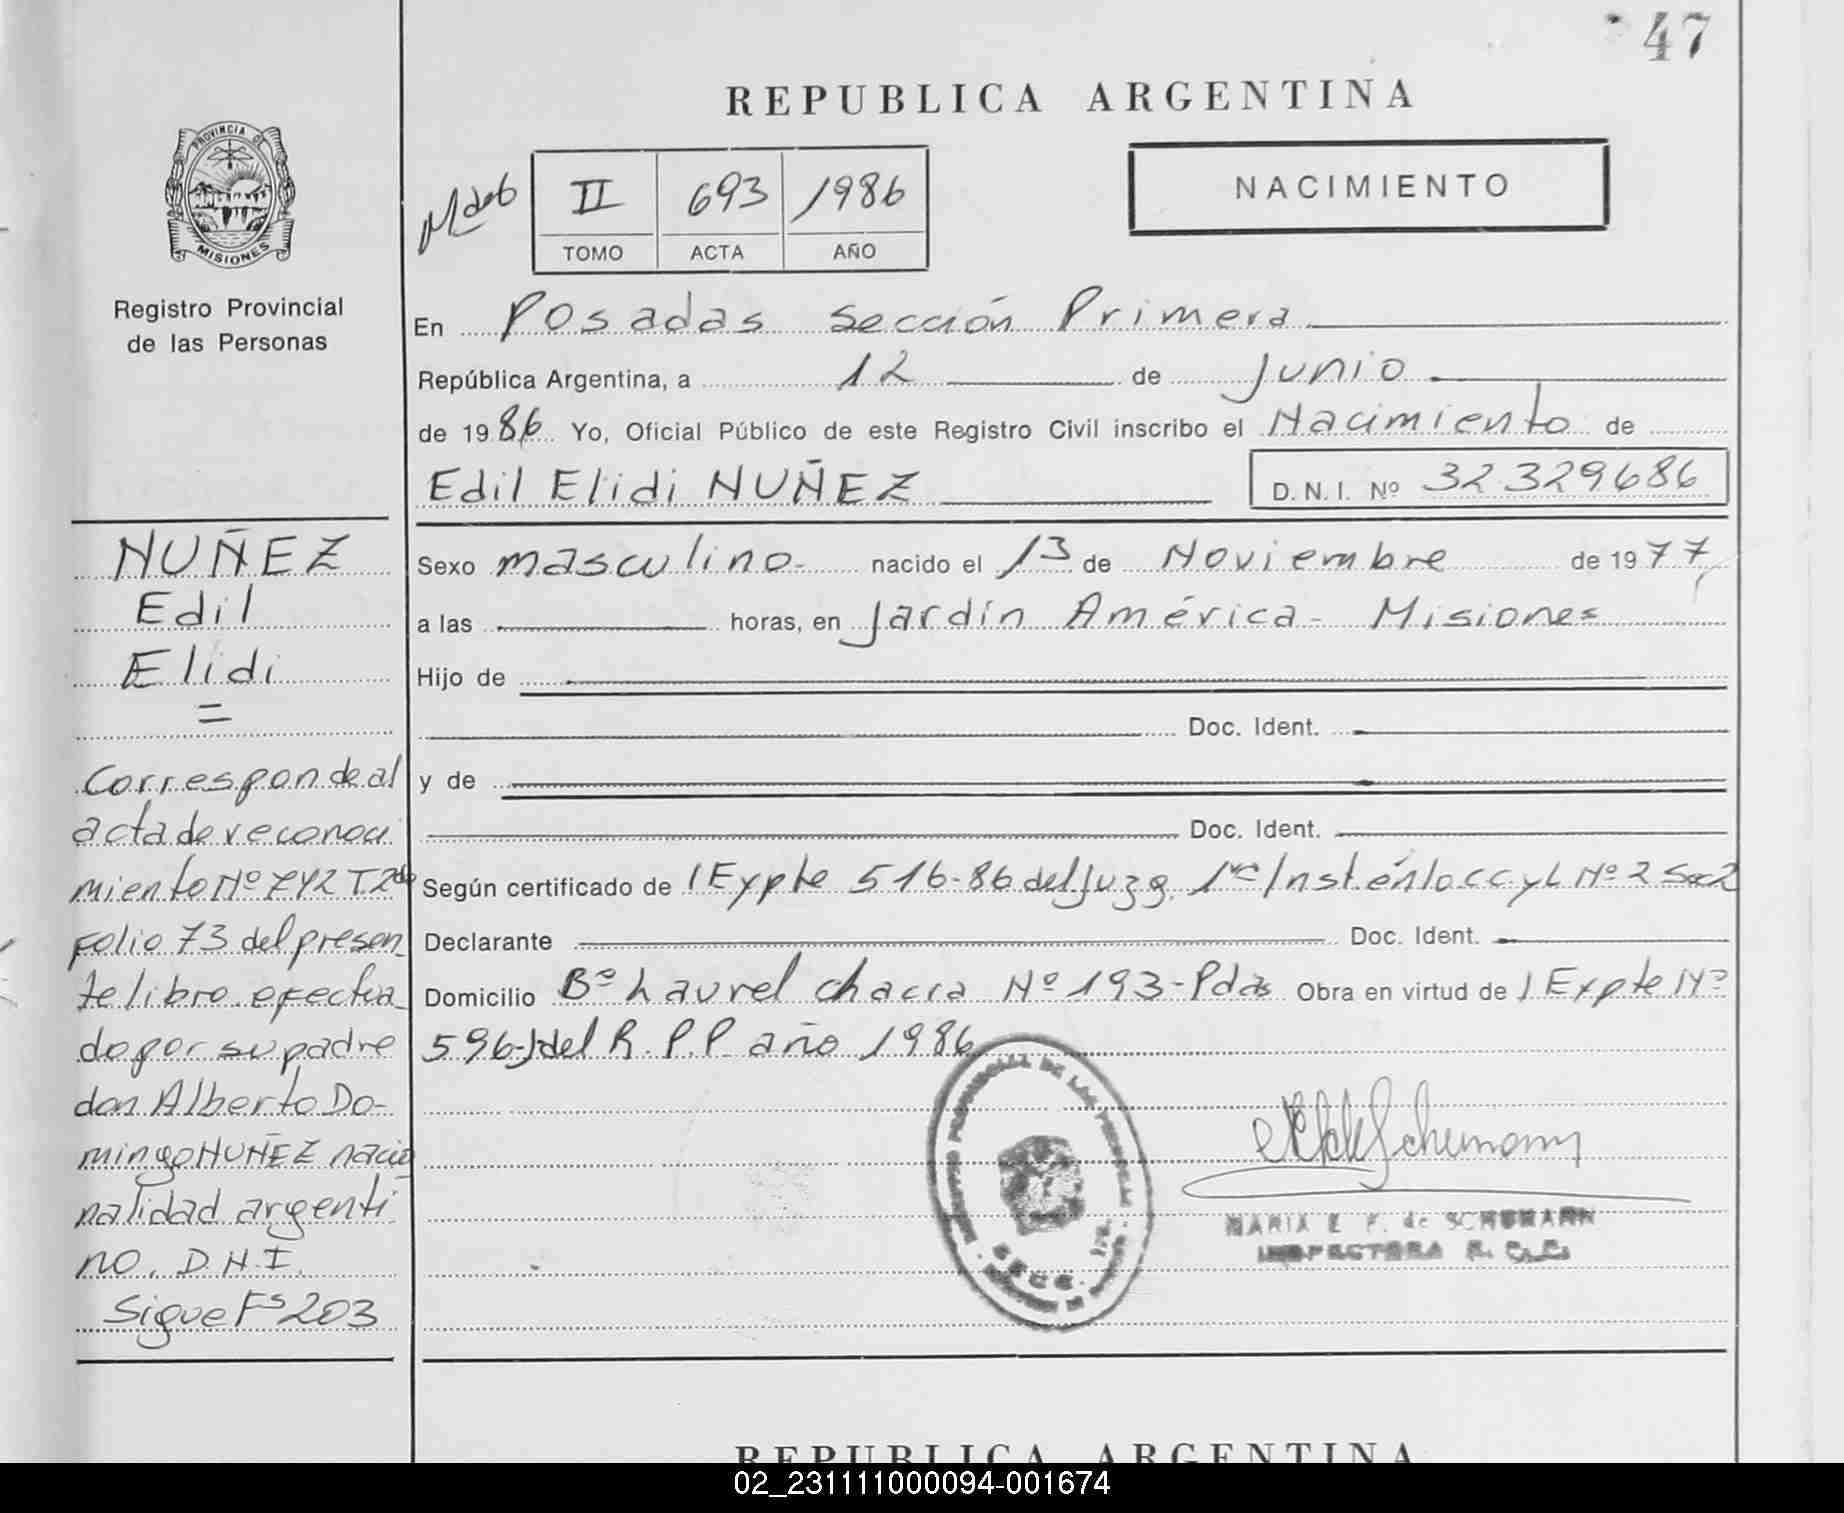 47
REPUBLICA ARGENTINA
PROVINCIA DE
MISIONES
Registro Provincial
de las Personas
II 693 1986
TOMO ACTA AÑO
NACIMIENTO
En Posadas Sección Primera
República Argentina, a 12 de Junio
de 1986 Yo, Oficial Público de este Registro Civil inscribo el Nacimiento de
Edil Elidi NUÑEZ D.N.I. Nº 32329686
Sexo masculino nacido el 13 de Noviembre de 1977
a las horas, en Jardín América - Misiones
Hijo de
Doc. Ident.
y de
Doc. Ident.
Según certificado de / Expte 516-86 del Juzg. 1ra Inst. en lo C C y L Nº 2 Sec 2
Declarante Doc. Ident.
Domicilio Bº Laurel chacra Nº 193 - Pdas Obra en virtud de / Expte Nº
596-J del R.P.P. año 1986
NUÑEZ
Edil
Elidi
=
Corresponde al
acta de reconoci
miento Nº 742 T. 2do
Folio 73 del presen
te libro efectua
do por su padre
don Alberto Do-
mingo NUÑEZ nacio
nalidad argenti
no. D.N.I.
Sigue Fs 203
MARIA E. F. de SCHUMANN
INSPECTORA R. C.
REPUBLICA ARGENTINA
02_231111000094-001674